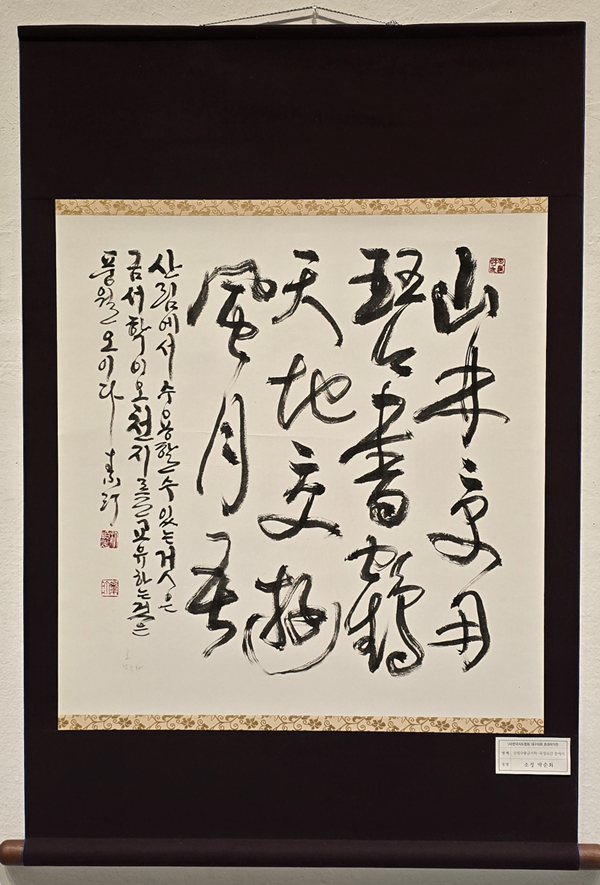 山林受用
琴書鶴
天地交遊
風月吾
산림에서 수용할 수 있는 것은
금서학이오 천지를 교유하는 것은
풍월오이다 素汀
소정